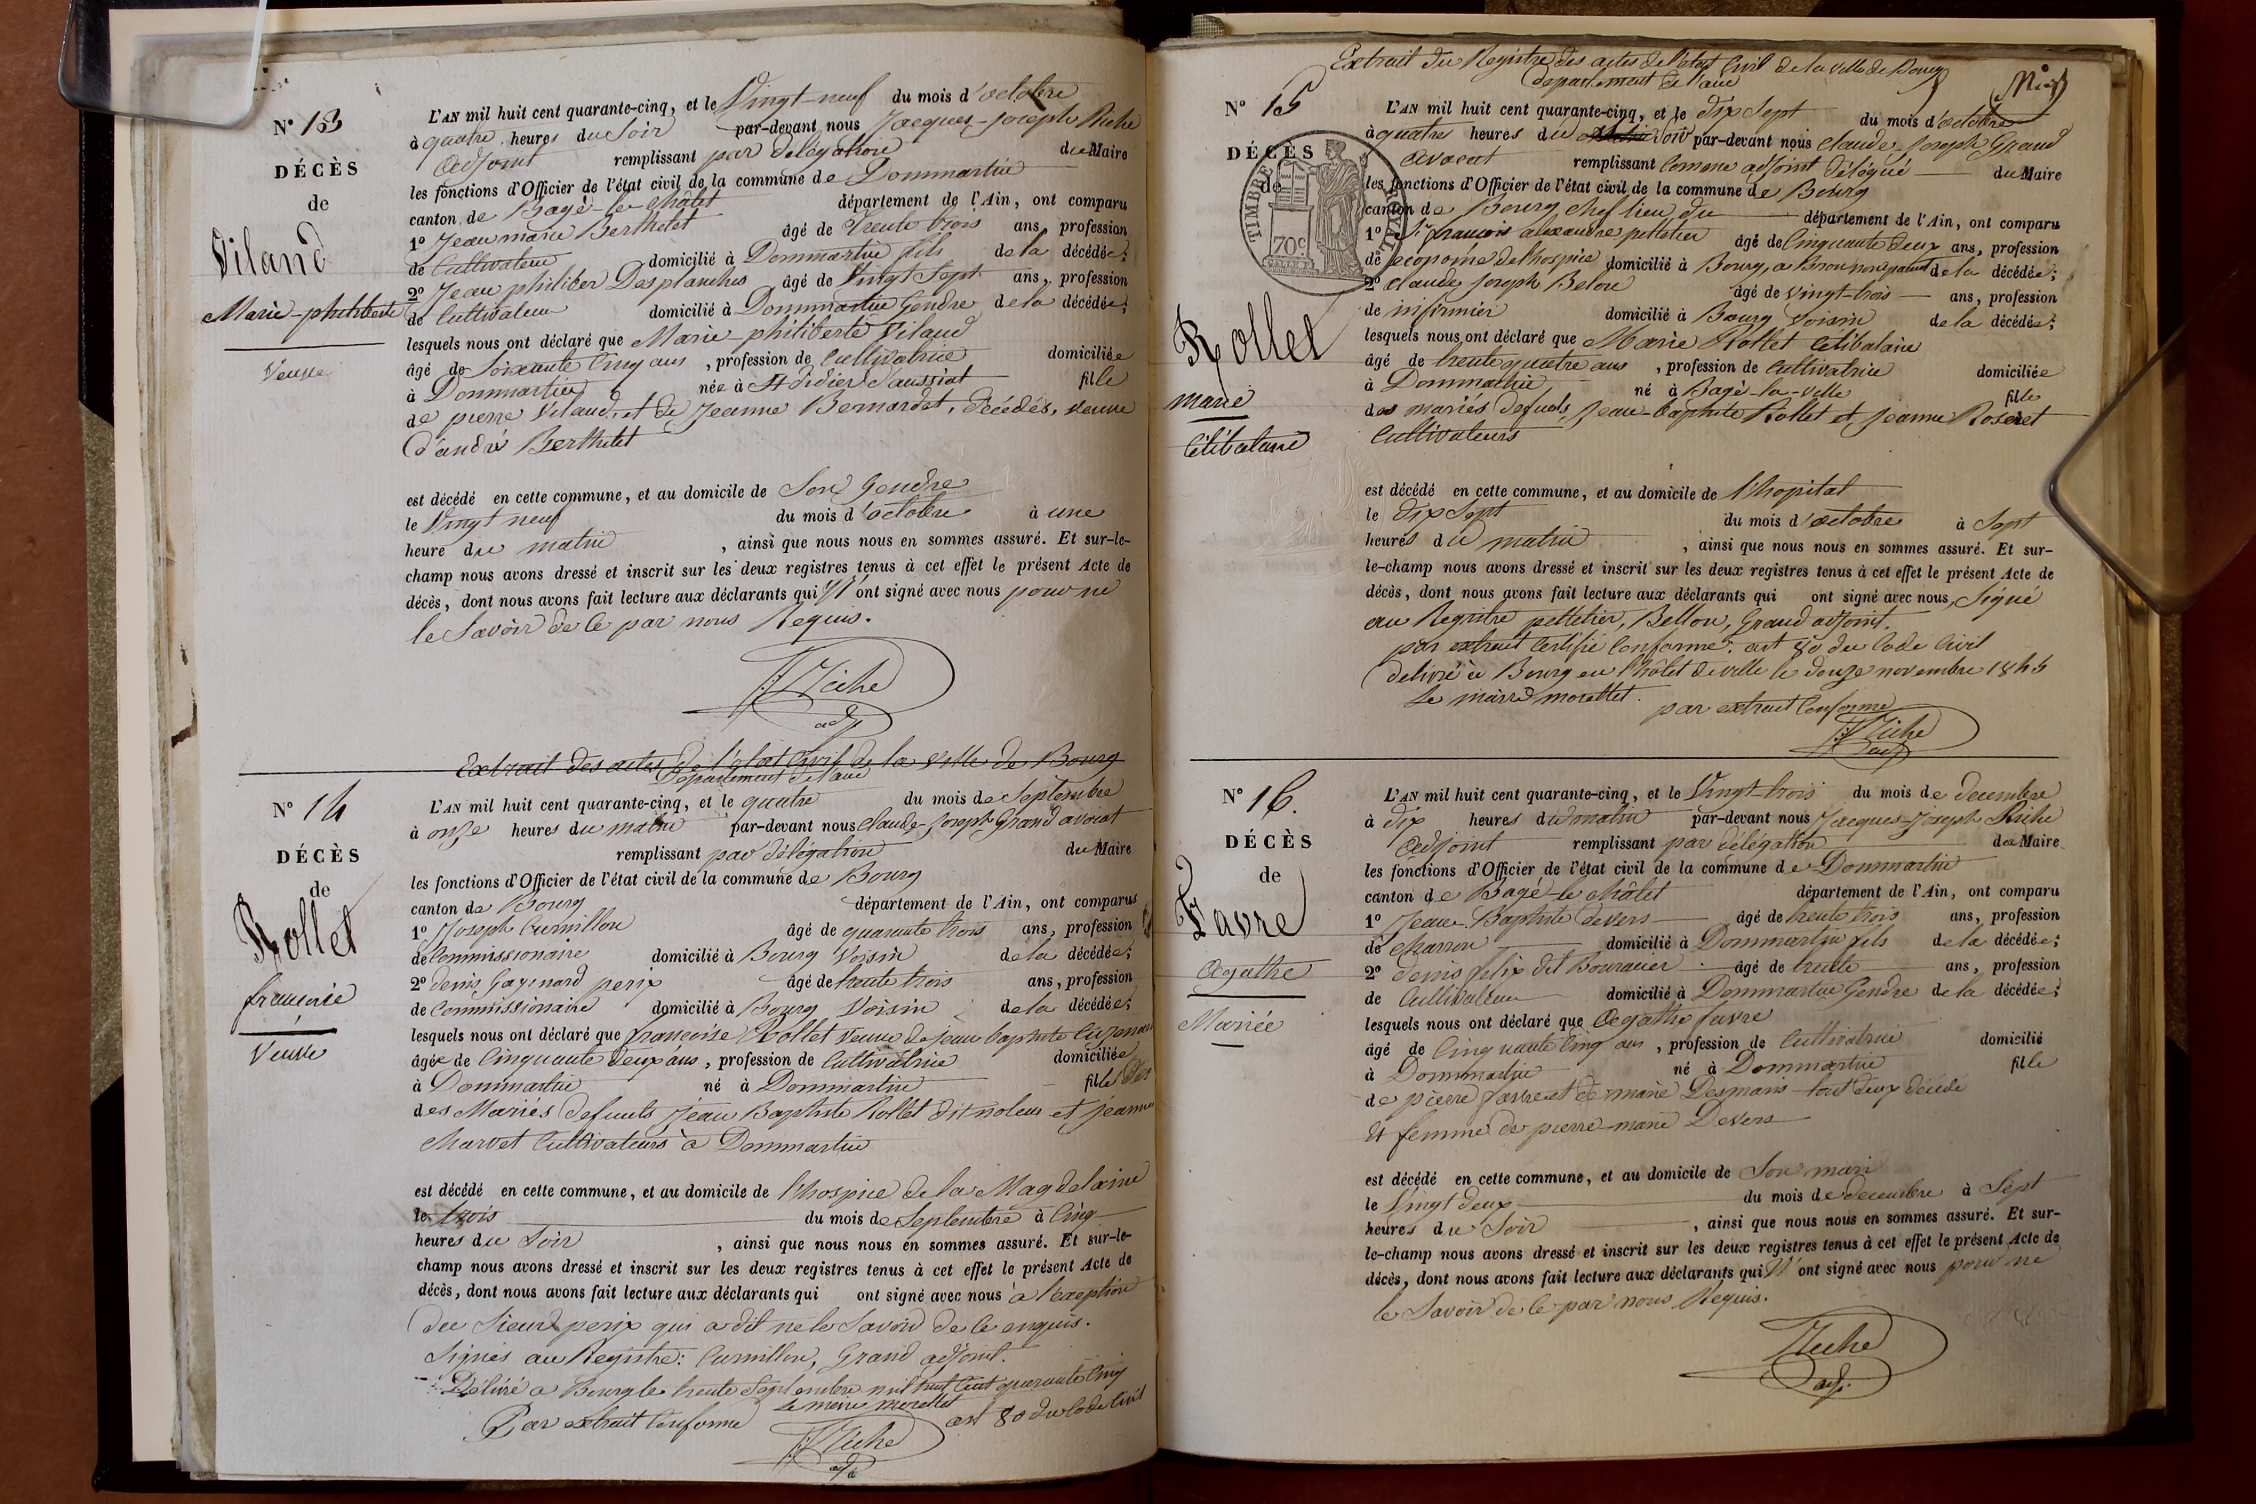 N° 13
DÉCÈS
de
Viland
Marie-philiberte
Veuve
L'AN mil huit cent quarante-cinq, et le Vingt-neuf du mois d'octobre
à quatre heures du Soir par-devant nous Jacques-Joseph Riche
Adjoint remplissant par délégation du Maire
les fonctions d'Officier de l'état civil de la commune de Dommartin
canton de Bagé-le-châtel département de l'Ain, ont comparu
1° Jean marie Berthelet âgé de trente trois ans, profession
de Cultivateur domicilié à Dommartin fils de la décédée;
2° Jean philiber Desplanches âgé de Vingt Sept ans, profession
de Cultivateur domicilié à Dommartin Gendre de la décédée;
lesquels nous ont déclaré que Marie-philiberte Vilaud
âgé de Soixante Cinq ans, profession de Cultivatrice domiciliée
à Dommartin née à St didier d'aussiat fille
de pierre Vilaud, et de Jeanne Bernardet, décédés, veuve
d'andré Berthelet
est décédé en cette commune, et au domicile de Son Gendre
le Vingt neuf du mois d'octobre à une
heure du matin, ainsi que nous nous en sommes assuré. Et sur-le-
champ nous avons dressé et inscrit sur les deux registres tenus à cet effet le présent Acte de
décès, dont nous avons fait lecture aux déclarants qui N'ont signé avec nous pour ne
le Savoir de Ce par nous Requis.
Riche
adj
Extrait des actes de l'état Civil de la Ville de Bourg
Département de l'ain
N° 14
DÉCÈS
de
Rollet
françoise
Veuve
L'AN mil huit cent quarante-cinq, et le quatre du mois de Septembre
à onze heures du matin par-devant nous claude-Joseph Grand avocat
remplissant par délégation du Maire
les fonctions d'Officier de l'état civil de la commune de Bourg
canton de Bourg département de l'Ain, ont comparus
1° Joseph Curnillon âgé de quarante trois ans, profession
de Commissionaire domicilié à Bourg Voisin de la décédée;
2° denis Gaymard perix âgé de trente trois ans, profession
de Commissionaire domicilié à Bourg Voisin de la décédée;
lesquels nous ont déclaré que françoise Rollet veuve de jean baptiste
âgée de Cinquante deux ans, profession de Cultivatrice domiciliée
à Dommartin né à Dommartin fille
des Mariés defunts Jean Baptiste Rollet dit et jeanne
Marvet Cultivateurs à Dommartin
est décédé en cette commune, et au domicile de l'hospice de la Magdelaine
le trois du mois de Septembre à Cinq
heures du Soir, ainsi que nous nous en sommes assuré. Et sur-le-
champ nous avons dressé et inscrit sur les deux registres tenus à cet effet le présent Acte de
décès, dont nous avons fait lecture aux déclarants qui ont signé avec nous à l'exeption
du Sieur perix qui a dit ne le Savoir de Ce enquis.
Signés au Registre: Curnillon, Grand adjoint.
Délivré a Bourg le trente Septembre mil huit Cent quarante Cinq
le maire morellet
Par extrait Conforme art 80 du Code Civil
Riche
adj
Extrait du Registre des actes de l'état Civil de la ville de Bourg
département de l'ain
N° 15
DÉCÈS
de
TIMBRE ROYAL
70c
Rollet
marie
Célibataire
L'AN mil huit cent quarante-cinq, et le dix Sept du mois d'octobre
à quatre heures du soir par-devant nous claude-Joseph Grand
avocat remplissant Comme adjoint délégué du Maire
les fonctions d'Officier de l'état civil de la commune de Bourg
canton de Bourg chef lieu du département de l'Ain, ont comparu
1° Sr françois alexandre pelletier âgé de Cinquante deux ans, profession
de econome de l'hospice domicilié à Bourg, a Brou non parent de la décédée;
2° claude Joseph Belon âgé de vingt-trois ans, profession
de infirmier domicilié à Bourg Voisin de la décédée;
lesquels nous ont déclaré que Marie Rollet Célibataire
âgé de trente quatre ans, profession de Cultivatrice domiciliée
à Dommartin né à Bagé-la-ville fille
des mariés defunts Jean-baptiste Rollet et Jeanne Roseret
Cultivateurs
est décédé en cette commune, et au domicile de l'hopital
le dix Sept du mois d'octobre à Sept
heures du matin, ainsi que nous nous en sommes assuré. Et sur-
le-champ nous avons dressé et inscrit sur les deux registres tenus à cet effet le présent Acte de
décès, dont nous avons fait lecture aux déclarants qui ont signé avec nous, Signé
au Registre pelletier, Bellon, Grand adjoint.
par extrait Certifié Conforme. art 80 du Code Civil
délivré à Bourg en l'hôtel de ville le douze novembre 1845
Le maire morellet.
par extrait Conforme
Riche
adj
N° 16.
DÉCÈS
de
Favre
Agathe
Mariée
L'AN mil huit cent quarante-cinq, et le Vingt-trois du mois de decembre
à dix heures du matin par-devant nous Jacques-Joseph Riche
Adjoint remplissant par délégation du Maire
les fonctions d'Officier de l'état civil de la commune de Dommartin
canton de Bagé-le-châtel département de l'Ain, ont comparu
1° Jean-Baptiste devers âgé de trente trois ans, profession
de charron domicilié à Dommartin fils de la décédée;
2° denis felix dit Bouracier âgé de trente ans, profession
de Cultivateur domicilié à Dommartin Gendre de la décédée;
lesquels nous ont déclaré que Agathe favre
âgé de Cinquante Cinq ans, profession de Cultivatrice domicilié
à Dommartin né à Dommartin fille
de pierre favre et de marie Desmaris tout deux décédé
et femme de pierre-marie Devers
est décédé en cette commune, et au domicile de Son mari
le Vingt deux du mois de decembre à Sept
heures du Soir, ainsi que nous nous en sommes assuré. Et sur-
le-champ nous avons dressé et inscrit sur les deux registres tenus à cet effet le présent Acte de
décès, dont nous avons fait lecture aux déclarants qui N'ont signé avec nous pour ne
le Savoir de Ce par nous Requis.
Riche
adj.